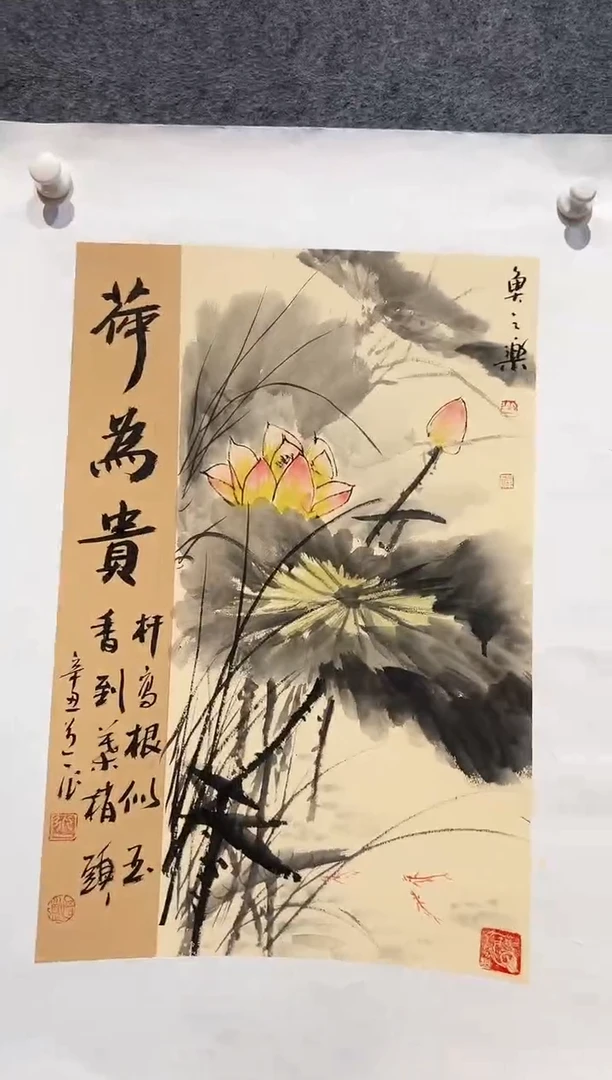 魚之樂
荷為貴
杆高根似玉
香到葉梢頭
辛丑